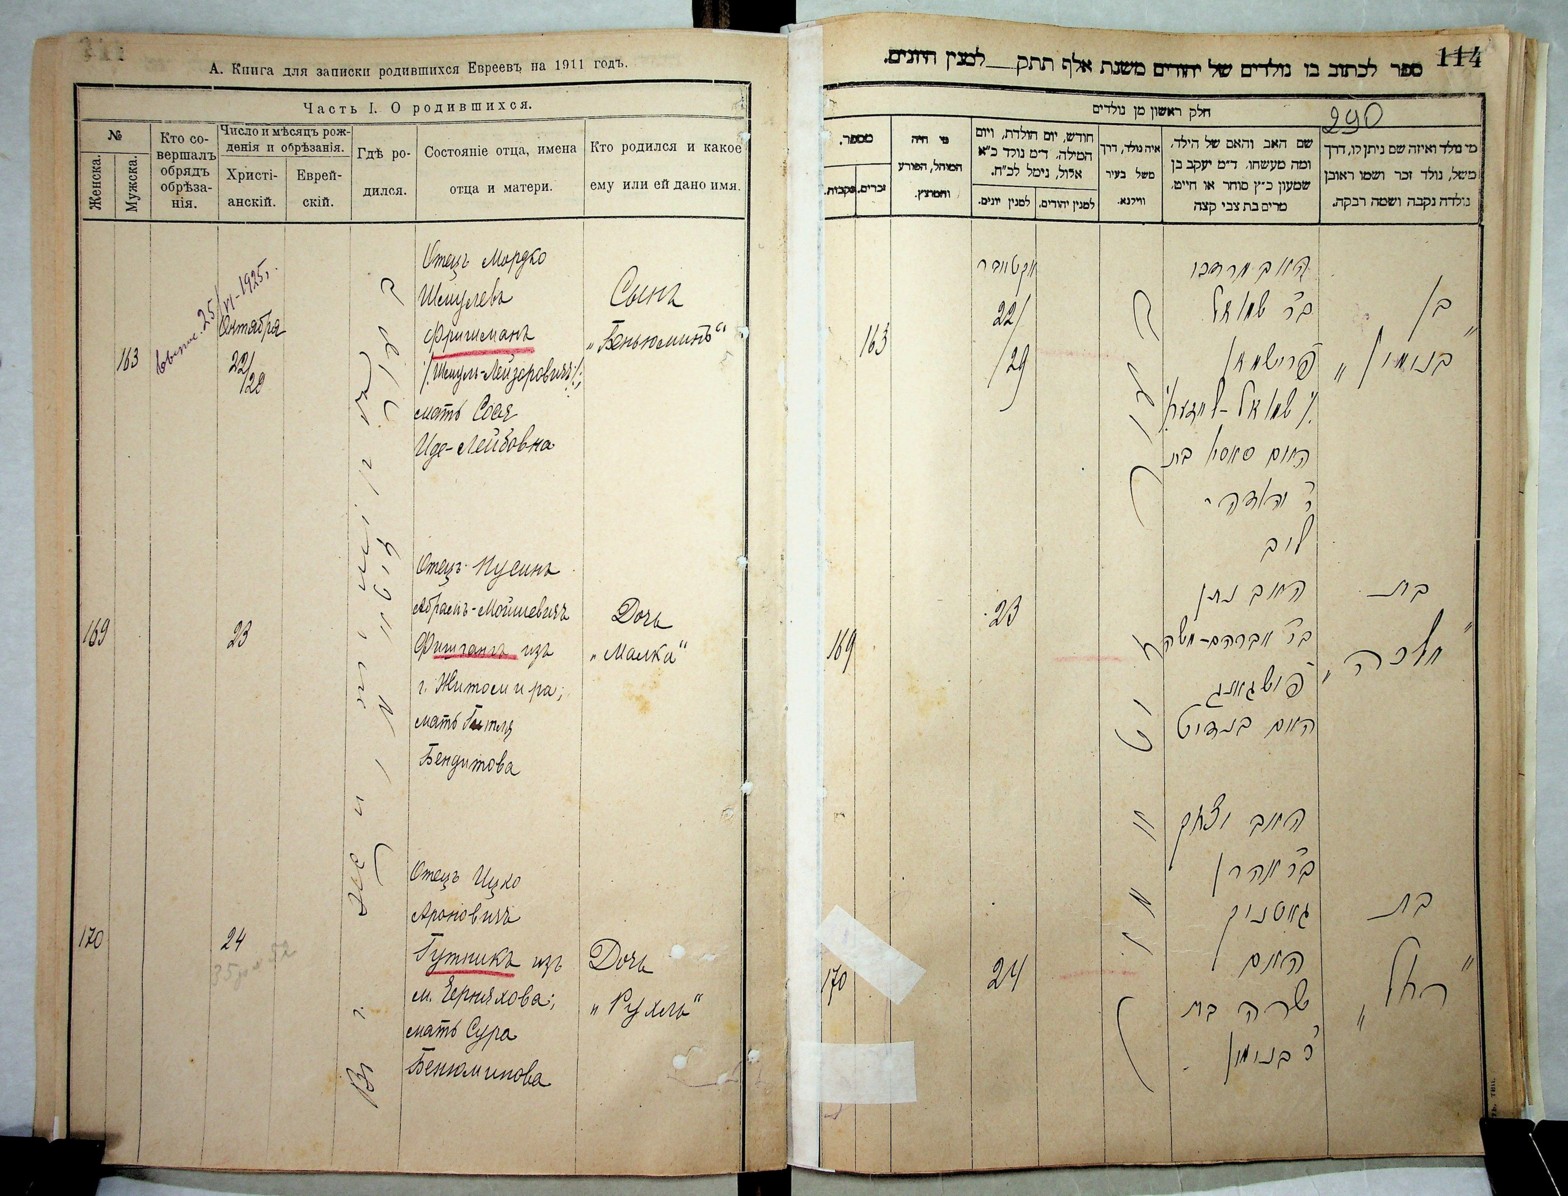 А. Книга для записки родившихся Евреевъ на 1911 годъ.
Часть I. О родившихся.
№
Женска.
Мужска.
Кто со-
вершалъ
обрядъ
обрѣза-
нія.
Число и мѣсяцъ рож-
денія и обрѣзанія.
Христі-
анскій.
Еврей-
скій.
Гдѣ ро-
дился.
Состояніе отца, имена
отца и матери.
Кто родился и какое
ему или ей дано имя.
163
25/VI-1925 г.
Октября
22/
28
Отецъ Мордко
Шмулевъ
Фришманъ
/Шмуль-Лейзеровичъ/,
мать Сося
Иде-Лейбовна
Сынъ
„Беньюминъ“
169
23
Отецъ Нусинъ
Абрамъ-Мойшевичъ
изъ
г. Житомира;
мать
Бендитова
Дочь
„Малка“
170
24
Отецъ Ицко
Ароновичъ
Гутникъ изъ
м. Черняхова;
мать Сура
Бенюминова
Дочь
„Рухль“
114
ספר לכתוב בו נולדים של יהודים משנת אלף תתק___למנין היונים.
290
חלק ראשון מן נולדים
מי נולד ואיזה שם ניתן לו, דרך
משל, נולד זכר ושמו ראובן
נולדה נקבה ושמה רבקה.
שם האב והאם של הילד.
ומה מעשהו. ד״מ יעקב בן
שמעון כ״ץ סוחר או חייט.
מרים בת צבי קצה
איה נולד, דרך
משל בעיר
ווילנא.
חודש, יום הולדת, ויום
המילה. ד״מ נולד כ״א
אלול, נימל לכ״ח.
למנין יהודים.
למנין יונים.
מי היה
המוהל, הפורע
והמוצץ.
מספר.
זכרים.
נקבות.
בן
„בנימין“
האב מרדכי
בר שמואל
פרישמאן
/שמואל-ליזער/
האם סאסי בת
ר׳ יהודה-
ליב
אקטאבר
22/
/29
163
בת
„מלכה“
האב נתן
בר אברהם-משה
23
169
בת
„רחל“
האב יצחק
בר אהרן
גוטניק
האם
שרה בת
ר׳ בנימין.
24
170